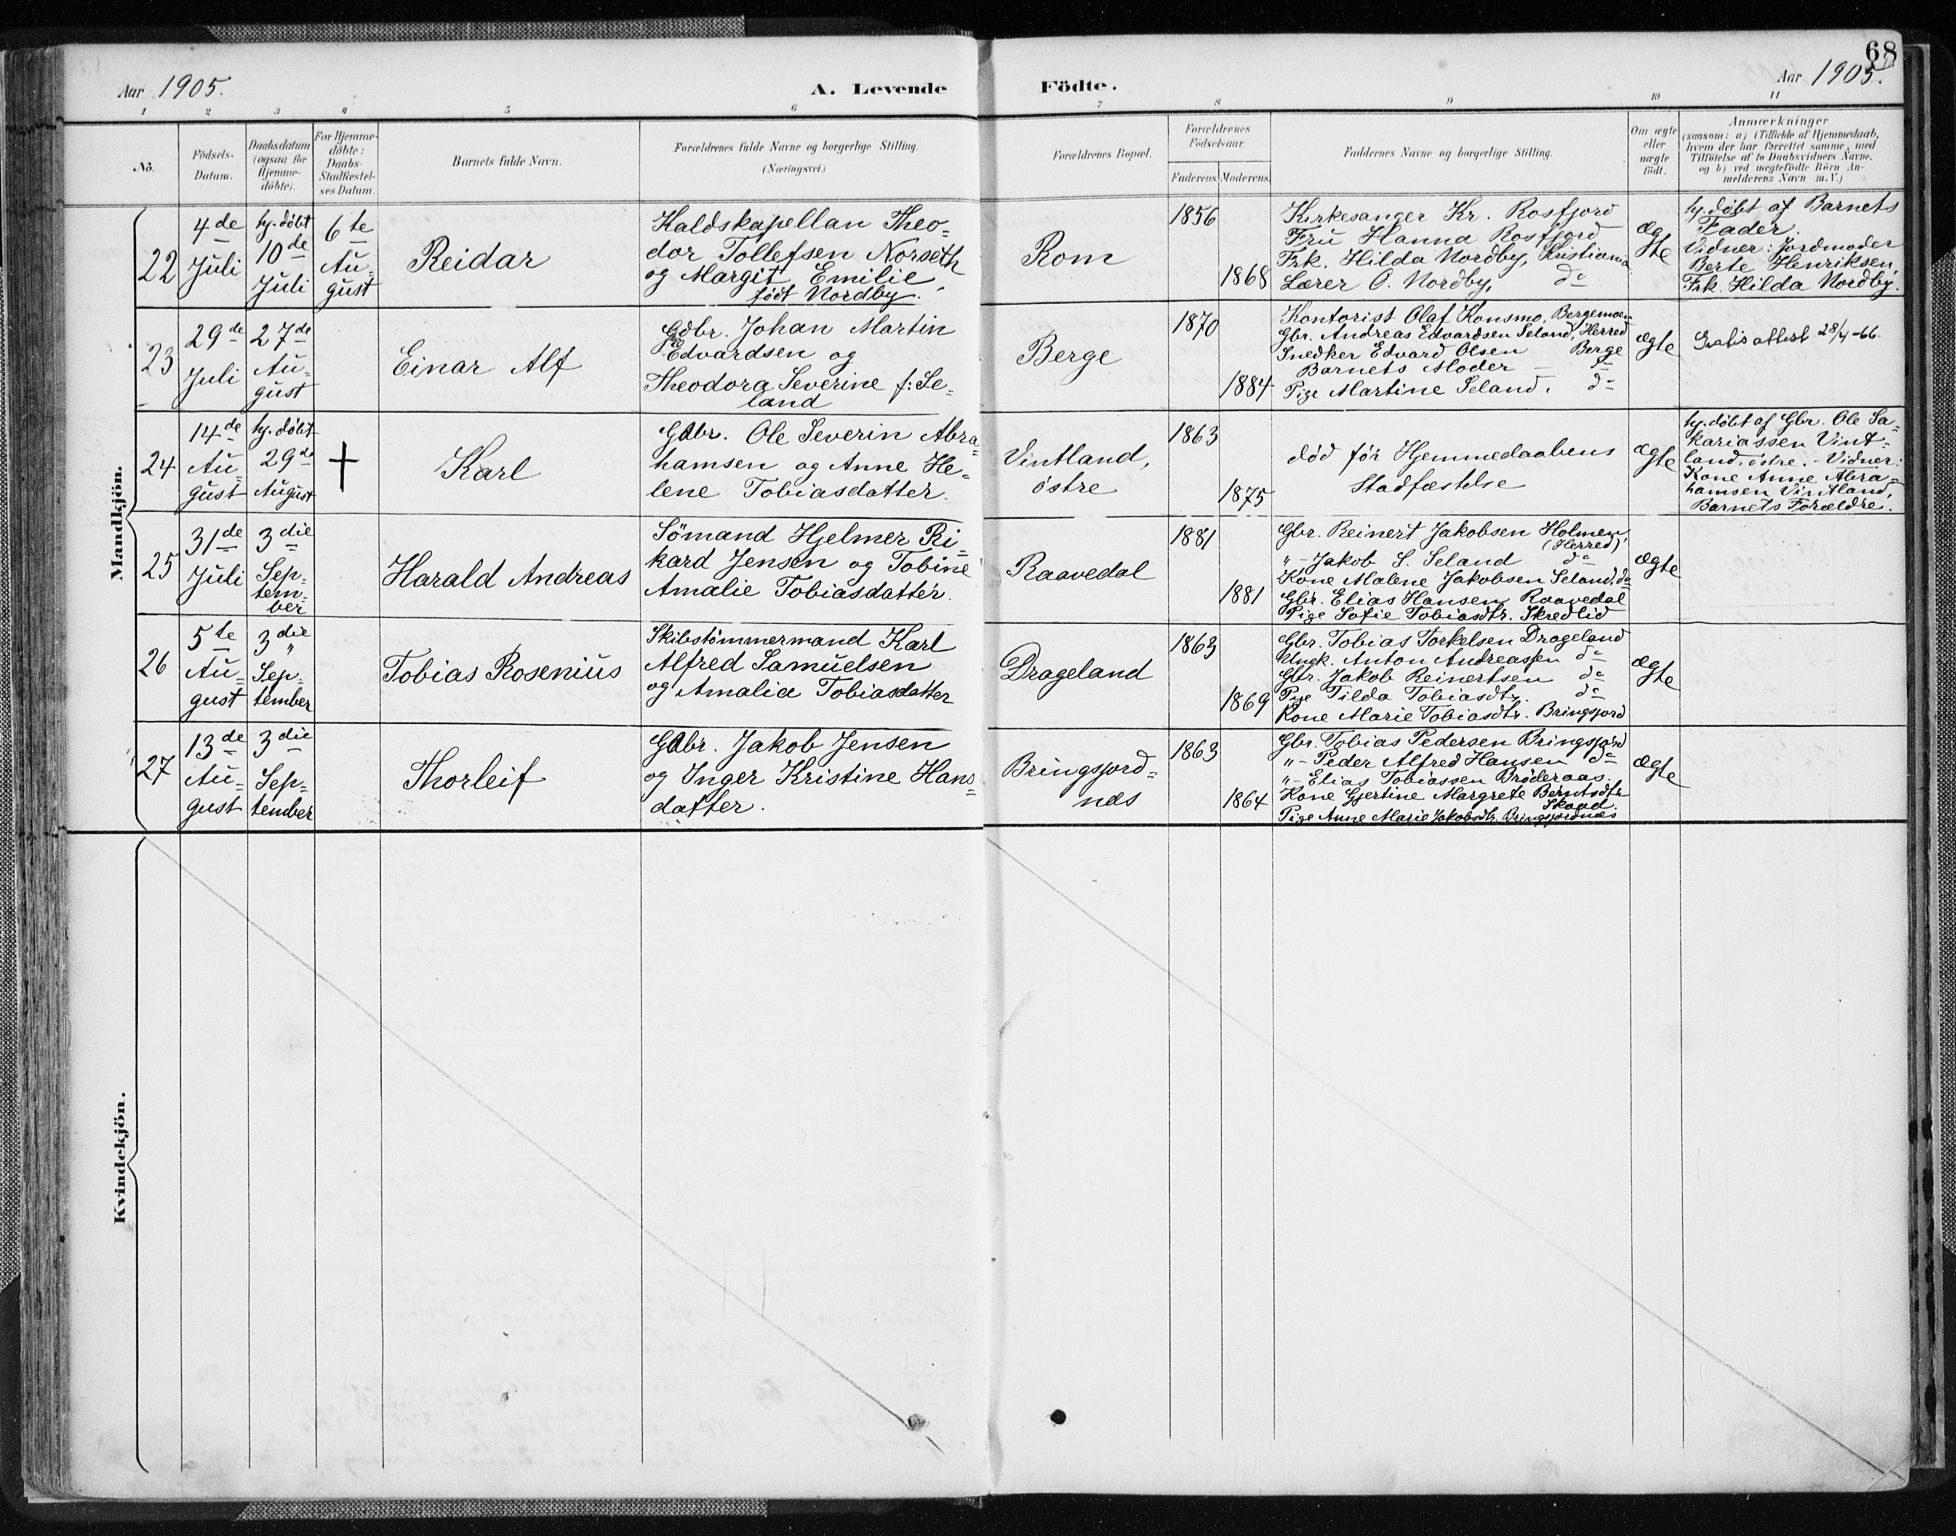 68
Aar 1905.
A. Levende Födte.
Aar 1905.
1 2 3 4 5 6 7 8 9 10 11
No.
Födsels-
Datum.
Daabsdatum
(ogsaa for
Hjemme-
döbte).
For Hjemme-
döbte:
Daabs-
Stadfæstel-
ses Datum.
Barnets fulde Navn.
Forældrenes fulde Navne og borgerlige Stilling.
(Næringsvei.)
Forældrenes Bopæl.
Forældrenes
Födselsaar.
Faderens. Moderens.
Faddernes Navne og borgerlige Stilling.
Om ægte
eller
uægte
födt.
Anmærkninger
(saasom: a) i Tilfælde af Hjemmedaab,
hvem der har forrettet samme, med
Tilföielse af to Daabsvidners Navne,
og b) ved uægtefödte Börn An-
melderens Navn m. V.)
Mandkjön.
22
4de
Juli
hj. döbt
10de
Juli
6te
Au-
gust
Reidar
Kaldskapellan Theo-
dor Tollefsen Norseth
og Margit Emilie
født Nordby.
Rom
1856
1868
Kirkesanger Kr. Rosfjord
Fru Hanna Rosfjord
Frk. Hilda Nordby, Kristiania
Lærer O. Nordby, do
æg
te
hj. döbt af Barnets
Fader.
Vidner: Jordmoder
Berte Henriksen,
Frk. Hilda Nordby.
23
29de
Juli
27de
Au-
gust
Einar Alf
Gdbr. Johan Martin
Edvardsen og
Theodora Severine f: Se-
land
Berge
1870
1884
Kontorist Olaf Konsmo, Bergemoen
Gbr. Andreas Edvardsen Seland, Herred
Snedker Edvard Olsen Berge
Barnets Moder – do
Pige Martine Seland. do
ægte
Gratis attest 28/4-66
24
14de
Au-
gust
hj. döbt
29de
August
†
Karl
Gdbr. Ole Severin Abra-
hamsen og Anne He-
lene Tobiasdatter.
Vintland,
østre
1863
1875
død før Hjemmedaabens
Stadfæstelse
æg
te
hj. döbt af Gbr. Ole Sa-
kariassen Vint-
land, østre. – Vidner:
Kone Anne Abra-
hamsen Vintland,
Barnets Forældre.
25
31de
Juli
3die
Sep-
tem-
ber
Harald Andreas
Sömand Hjelmer Ri-
kard Jensen og Tobine
Amalie Tobiasdatter.
Raavedal
1881
1881
Gbr. Reinert Jakobsen Holmen,
(Herred)
"- Jakob S. Seland do
Kone Malene Jakobsen Seland, do
Gbr. Elias Hansen Raavedal
Pige Sofie Tobiasdtr. Skredlid
ægte
26
5te
Au-
gust
3die
"
Sep-
tember
Tobias Rosenius
Skibstömmermand Karl
Alfred Samuelsen
og Amalia Tobiasdatter
Drageland
1863
1869
Gbr. Tobias Torkelsen Drageland
Ungk. Anton Andreassen do
Gbr. Jakob Reinertsen do
Pige Tilda Tobiasdtr. do
Kone Marie Tobiasdtr. Bringsjord
ægte
27
13de
Au-
gust
3die
Sep-
tember
Thorleif
Gdbr. Jakob Jensen
og Inger Kristine Hans-
datter.
Bringsjord-
næs
1863
1864
Gbr. Tobias Pedersen Bringsjord
"- Peder Alfred Hansen do
"- Elias Tobiassen Brøderaas.
Kone Gjertine Margrete Berntsdtr
Skaad.
Pige Anne Marie Jakobsdtr. Bringsjordnæs
ægte
Kvindekjön.